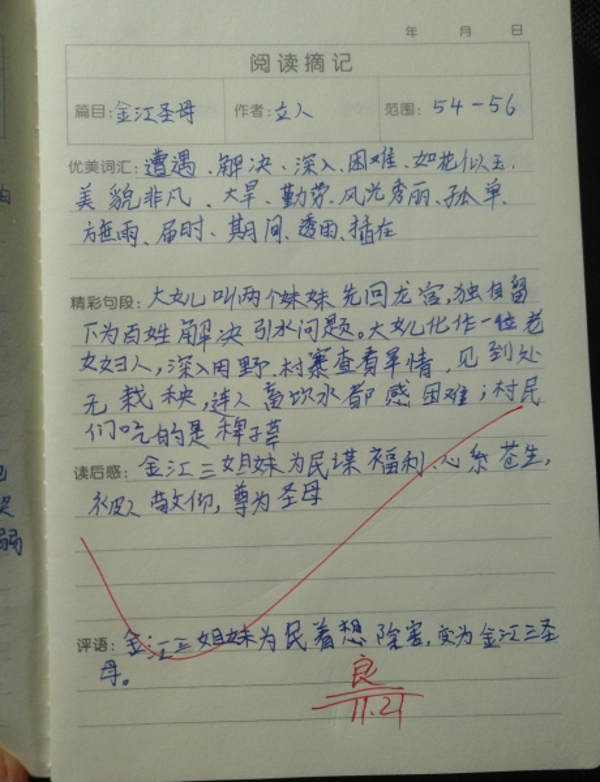 年 月 日
阅读摘记
篇目: 金江圣母 作者: 立人 范围: 54-56
优美词汇: 遭遇、解决、深入、困难、如花似玉、
美貌非凡、大旱、勤劳、风光秀丽、孤单、
施雨、届时、期间、透雨、插在
精彩句段: 大女儿叫两个妹妹先回龙宫,独自留
下为百姓解决引水问题。大女儿化作一位老
女妇人,深入田野、村寨查看旱情,见到处
无栽秧,连人畜饮水都感困难;村民
们吃的是稗子草
读后感: 金江三姐妹为民谋福利、心系苍生,
被人敬仰,尊为圣母
评语: 金江三姐妹为民着想除害,变为金江三圣
母。
良
11.21